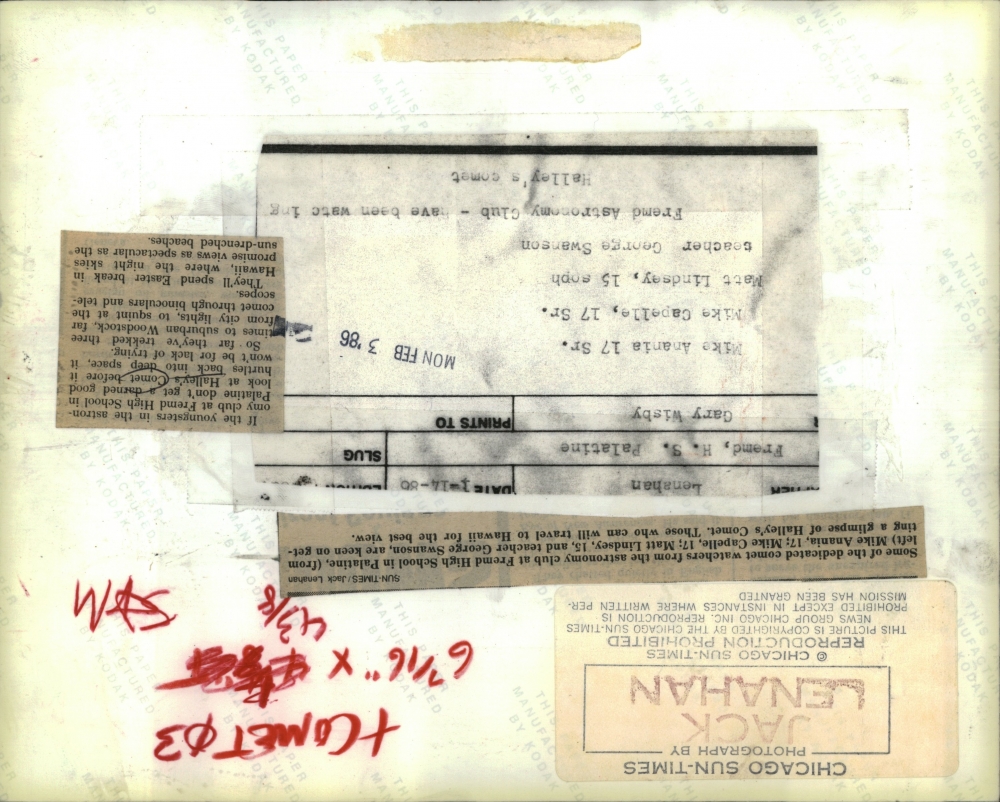 CHICAGO SUN-TIMES
PHOTOGRAPH BY
JACK
LENAHAN
© CHICAGO SUN-TIMES
REPRODUCTION PROHIBITED
THIS PICTURE IS COPYRIGHTED BY THE CHICAGO SUN-TIMES
NEWS GROUP CHICAGO, INC. REPRODUCTION IS
PROHIBITED EXCEPT IN INSTANCES WHERE WRITTEN PER-
MISSION HAS BEEN GRANTED
+COMET Ø3
6 7/16" X
4 3/8
SUN-TIMES/Jack Lenahan
Some of the dedicated comet watchers from the astronomy club at Fremd High School in Palatine, (from
left) Mike Anania, 17; Mike Capelle, 17; Matt Lindsey, 15, and teacher George Swanson, are keen on get-
ting a glimpse of Halley's Comet. Those who can will travel to Hawaii for the best view.
Lenahan
DATE
1-14-86
Fremd, H. S. Palatine
SLUG
Gary Wisby
PRINTS TO
MON FEB 3 '86
Mike Anania 17 Sr.
Mike Capelle, 17 Sr.
Matt Lindsey, 15 soph
teacher George Swanson
Fremd Astronomy Club - have been watc ing
Halley's comet
If the youngsters in the astron-
omy club at Fremd High School in
Palatine don't get a darned good
look at Halley's Comet before it
hurtles back into deep space, it
won't be for lack of trying.
So far they've trekked three
times to suburban Woodstock, far
from city lights, to squint at the
comet through binoculars and tele-
scopes.
They'll spend Easter break in
Hawaii, where the night skies
promise views as spectacular as the
sun-drenched beaches.
THIS PAPER
MANUFACTURED
BY KODAK